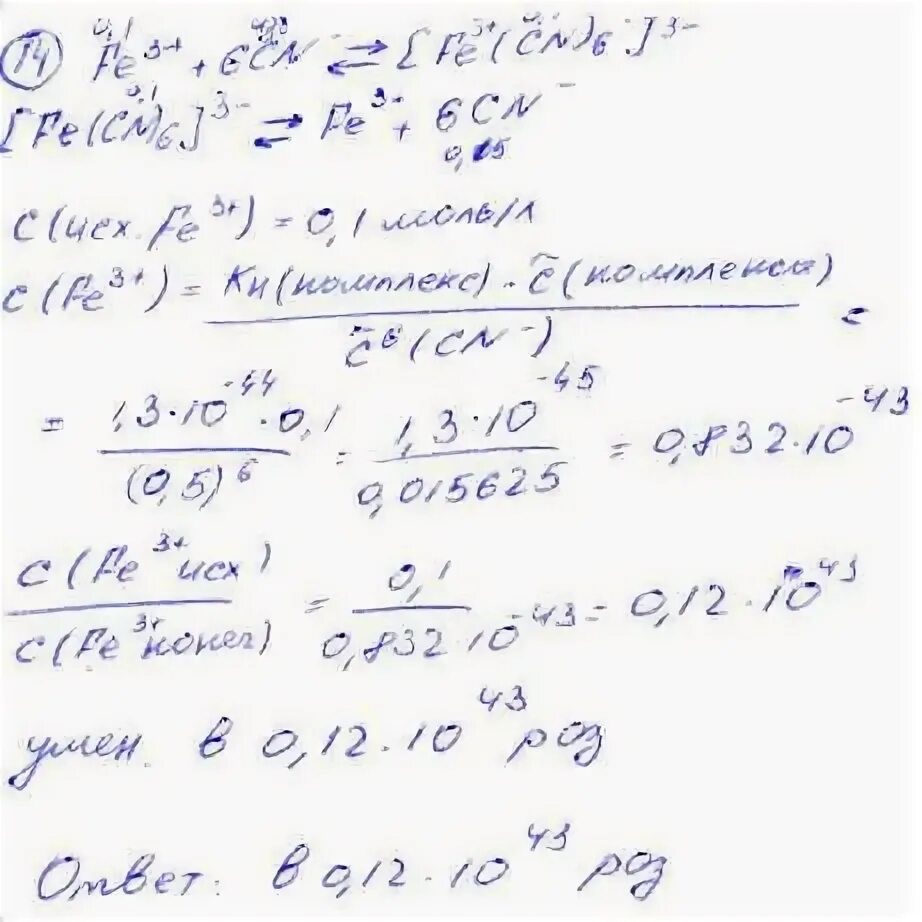 14) Fe³⁺ + 6CN⁻ ⇄ [Fe³⁺(CN)₆⁻]³⁻
0,1
[Fe(CN)₆]³⁻ ⇄ Fe³⁺ + 6CN⁻
C(исх. Fe³⁺) = 0,1 моль/л
C(Fe³⁺) = Kн(комплекс) · C̄(комплекса) / C̄⁶(CN⁻) =
= 1,3·10⁻⁴⁴ · 0,1 / (0,5)⁶ = 1,3·10⁻⁴⁵ / 0,015625 = 0,832·10⁻⁴³
C(Fe³⁺исх) / C(Fe³⁺конеч) = 0,1 / 0,832·10⁻⁴³ = 0,12·10⁴³
умен. в 0,12·10⁴³ роз
Ответ: в 0,12·10⁴³ роз